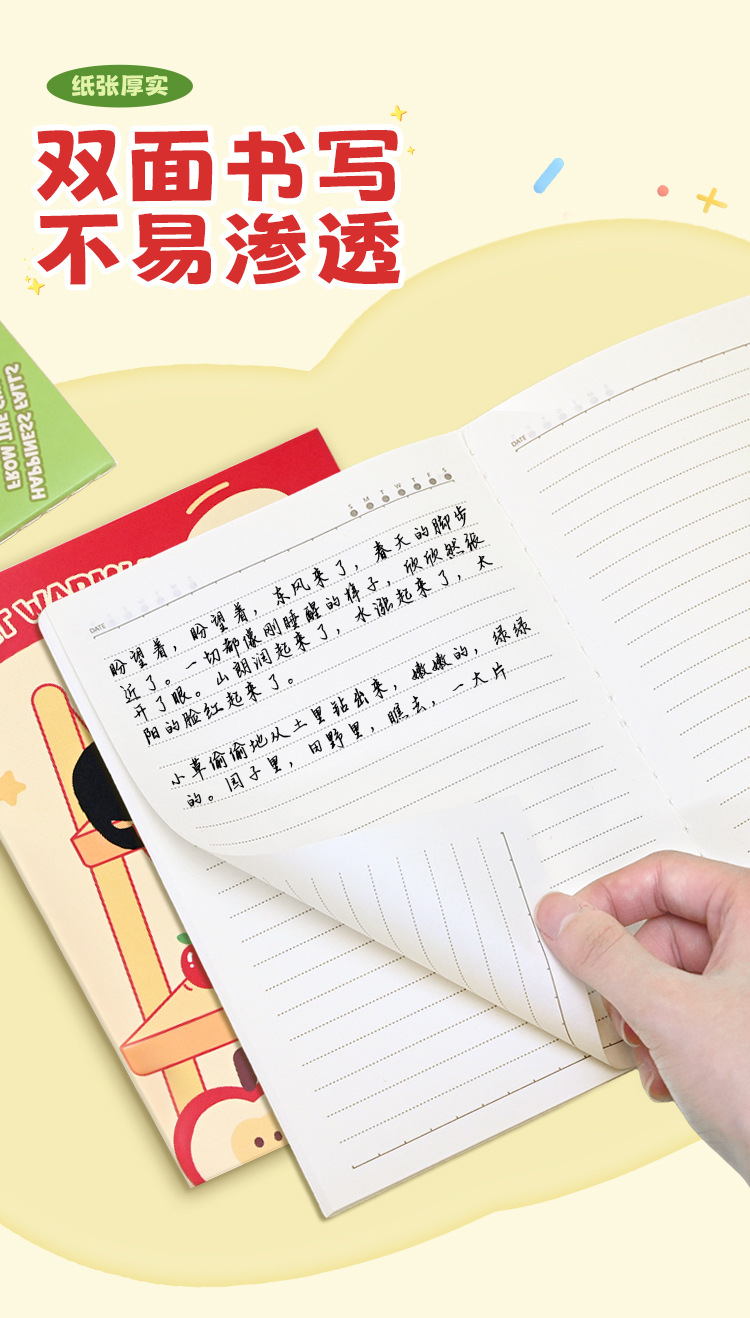 纸张厚实
双面书写
不易渗透
FROM THE
HAPPINESS FALLS
DATE
S M T W T F S
DATE
盼望着，盼望着，东风来了，春天的脚步
近了。一切都像刚睡醒的样子，欣欣然张
开了眼。山朗润起来了，水涨起来了，太
阳的脸红起来了。
小草偷偷地从土里钻出来，嫩嫩的，绿绿
的。园子里，田野里，瞧去，一大片